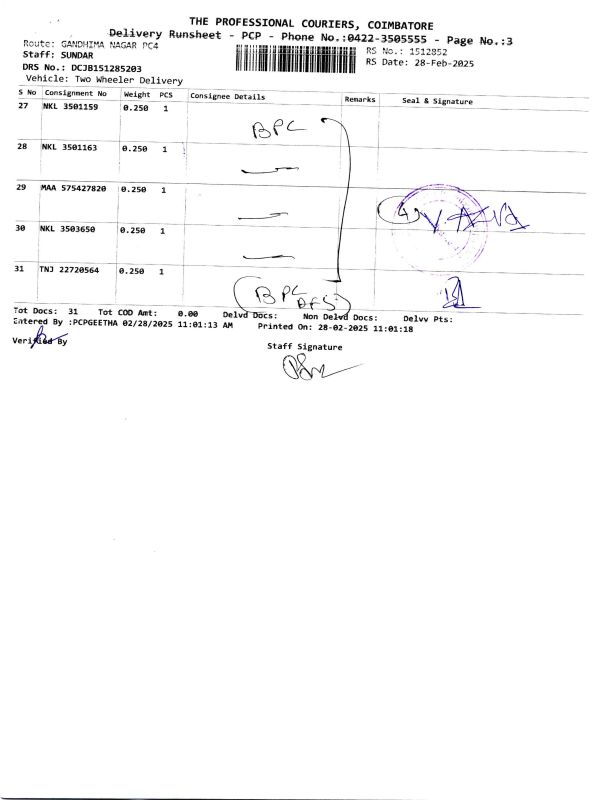 THE PROFESSIONAL COURIERS, COIMBATORE
Delivery Runsheet - PCP - Phone No.:0422-3505555 - Page No.:3
Route: GANDHIMA NAGAR PC4
RS No.: 1512852
Staff: SUNDAR
RS Date: 28-Feb-2025
DRS No.: DCJB151285203
Vehicle: Two Wheeler Delivery
S No Consignment No Weight PCS Consignee Details Remarks Seal & Signature
27 NKL 3501159 0.250 1
BPC
28 NKL 3501163 0.250 1
29 MAA 575427820 0.250 1
4
30 NKL 3503650 0.250 1
31 TNJ 22720564 0.250 1
BPC
Tot Docs: 31 Tot COD Amt: 0.00 Delvd Docs: Non Delvd Docs: Delvv Pts:
Entered By :PCPGEETHA 02/28/2025 11:01:13 AM Printed On: 28-02-2025 11:01:18
Verified By
Staff Signature